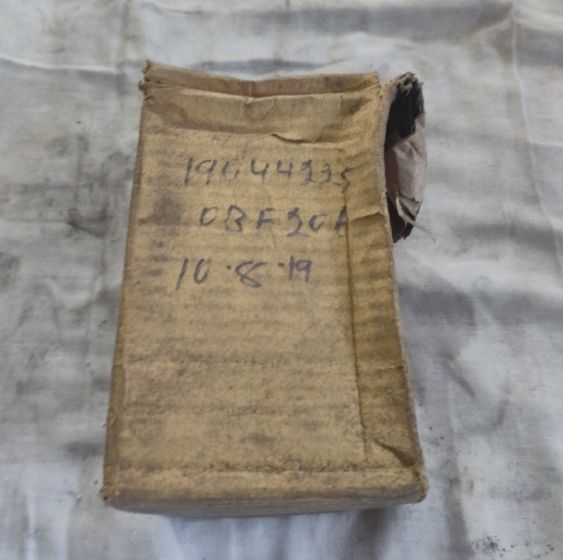 19044225
OBF20A
10.8.19